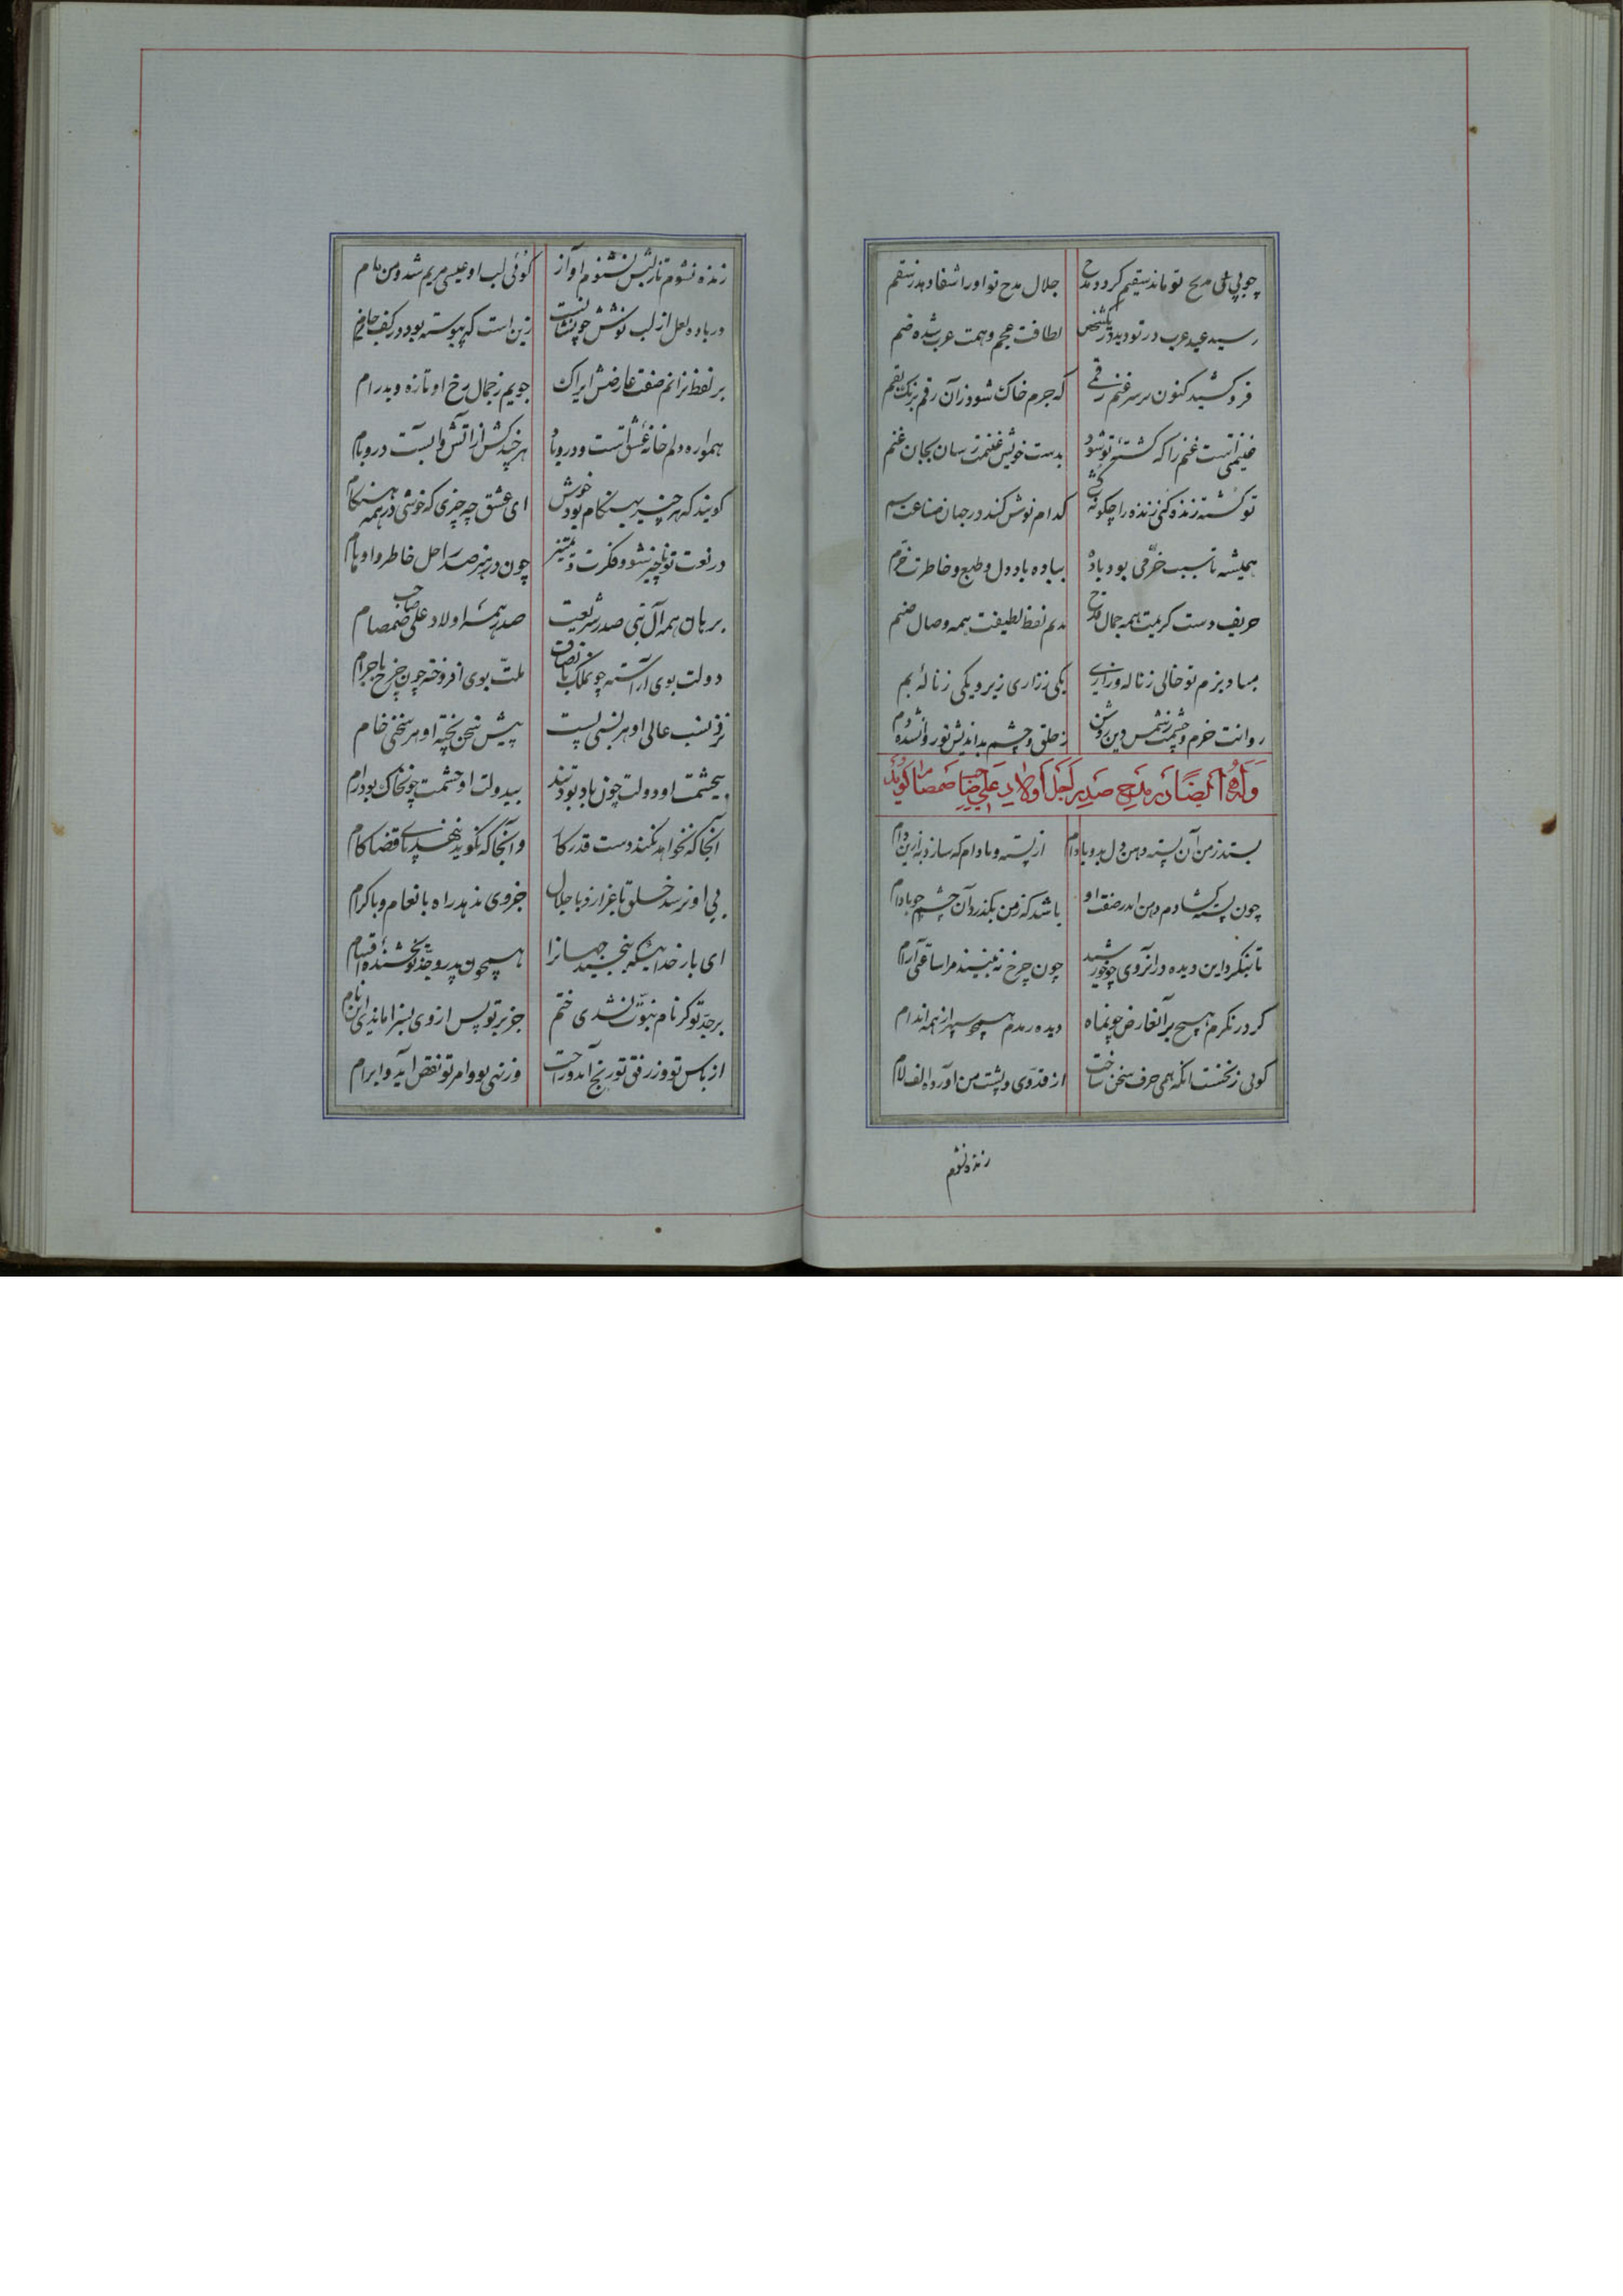 چو بی مدیح تو ماند سقیم گردد مدح جلال مدح تو او را شفا دهد ز سقم
رسید عید عرب در تو دید در یک شخص لطافت عجم و همت عرب شده ضم
فرو کشید کنون بر سر غنم رقمی که جرم خاک شود زآن رقم برنگ بقم
غنیمتی است غنم را که کشته تو شود بدست خویش غنیمت رسان بجان غنم
تو کشته زنده کنی زنده را چگونه کشی کدام نوش کند در جهان صناعت سم
همیشه تا سبب خرمی بود باده بباده باد دل و طبع و خاطرت خرم
حریف دست کریمت همه جمال قدح ندیم لفظ لطیفت همه وصال صنم
مباد بزم تو خالی ز ناله و زاری یکی ز زاری زیر و یکی ز نالهٔ بم
روانت خرم و چشمت ز شمس دین روشن ز حلق و چشم بداندیش تو روان شده دم
وله ایضا در مدح صدر اجل اولاد علی صاحب صمصام گوید
بستد ز من آن پسته دهن دل بدو بادام از پسته و بادام که سازد به ازین دام
چون پسته گشادم دهن اندر صفت او باشد که ز من بگذرد آن چشم چو بادام
تا ننگرد این دیده در آنروی چو خورشید چون چرخ نه بینند مرا ساعتی آرام
گر در نگرم هیچ بر آن عارض چون ماه دیده رمدم همچو سپر از همه اندام
گوئی ز نخست آنکه همی حرف سخن ساخت از قد وی و پشت من آورد الف لام
زنده نشوم
زنده نشوم تا ز لبش نشنوم آواز گوئی لب او عیسی مریم شد و من مام
در باده لعل از لب نوشش چو نشانست زین است که پیوسته بود در کف جام
بر لفظ نرانم صفت عارضش ایراک جویم ز جمال رخ او تازه و پدرام
همواره دلم خانهٔ عشق است و در و بام هر چند کش از آتش وآبست در و بام
گویند که هر چیز بهنگام بود خوش ای عشق چه چیزی که خوشی در همه هنگام
در نعت تو ناچیز شود فکرت و تمییز چون در هنر صدر اجل خاطر و اوهام
برهان همه آل نبی صدر شریعت صدر همه اولاد علی صاحب صمصام
دولت بوی آراسته چون ملک بانصاف ملت بوی افروخته چون چرخ باجرام
نزد نسب عالی او هر نسبی پست پیش سخن پخته او هر سخنی خام
بی حشمت او دولت چون باد بود تند بی دولت او حشمت چون خاک بود رام
آنجا که نخواهد نکند دست قدر کار وآنجا که نگوید ننهد پای قضا گام
بی او نرسد خلق باعزاز و باجلال جز وی ندهد راه بانعام و باکرام
ای بار خدائیکه نبخشید جهانرا همچون پدر و جد تو بخشندهٔ اقسام
بر جد تو گر نام نبوت نشدی ختم جز بر تو پس از وی بسزا ماندی این نام
از باس تو وز رفق تو رنج آمد و راحت وز نهی تو و امر تو نقض آید و ابرام